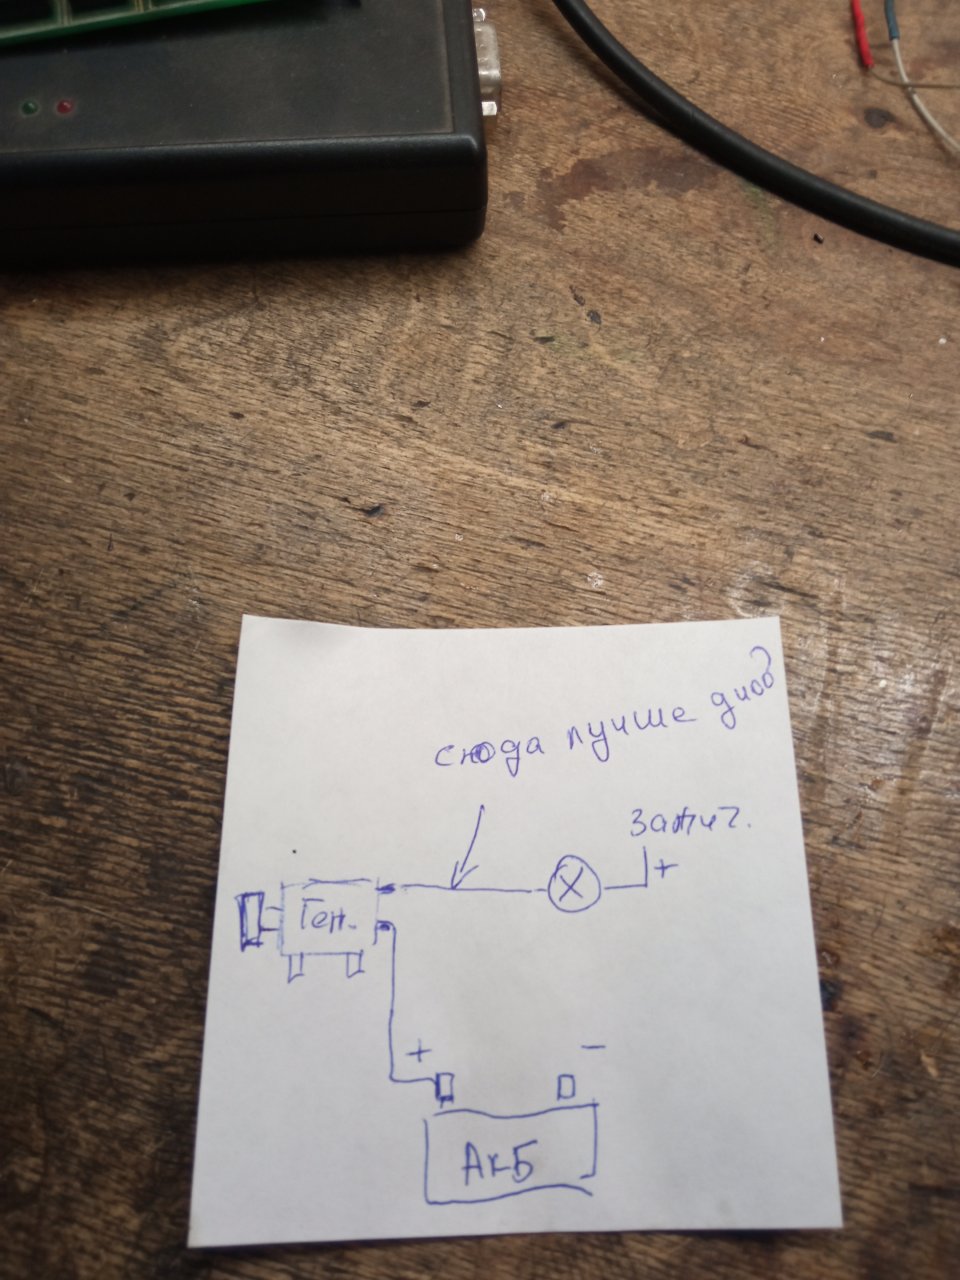 сюда лучше диод
Зажиг.
+
Ген.
+ −
АкБ